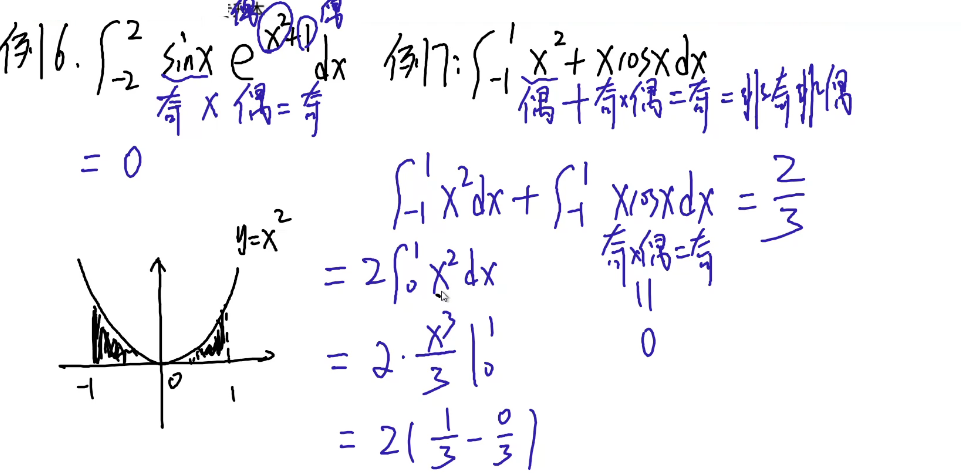 例16. ∫₋₂² sinx e^(x²+1) dx
偶 偶
奇 × 偶 = 奇
= 0
例17: ∫₋₁¹ x² + xcosx dx
偶 + 奇×偶 = 奇 = 非奇非偶
∫₋₁¹ x² dx + ∫₋₁¹ xcosx dx = 2/3
奇×偶=奇
||
0
= 2∫₀¹ x² dx
= 2 · x³/3 |₀¹
= 2(1/3 - 0/3)
y=x²
-1 0 1